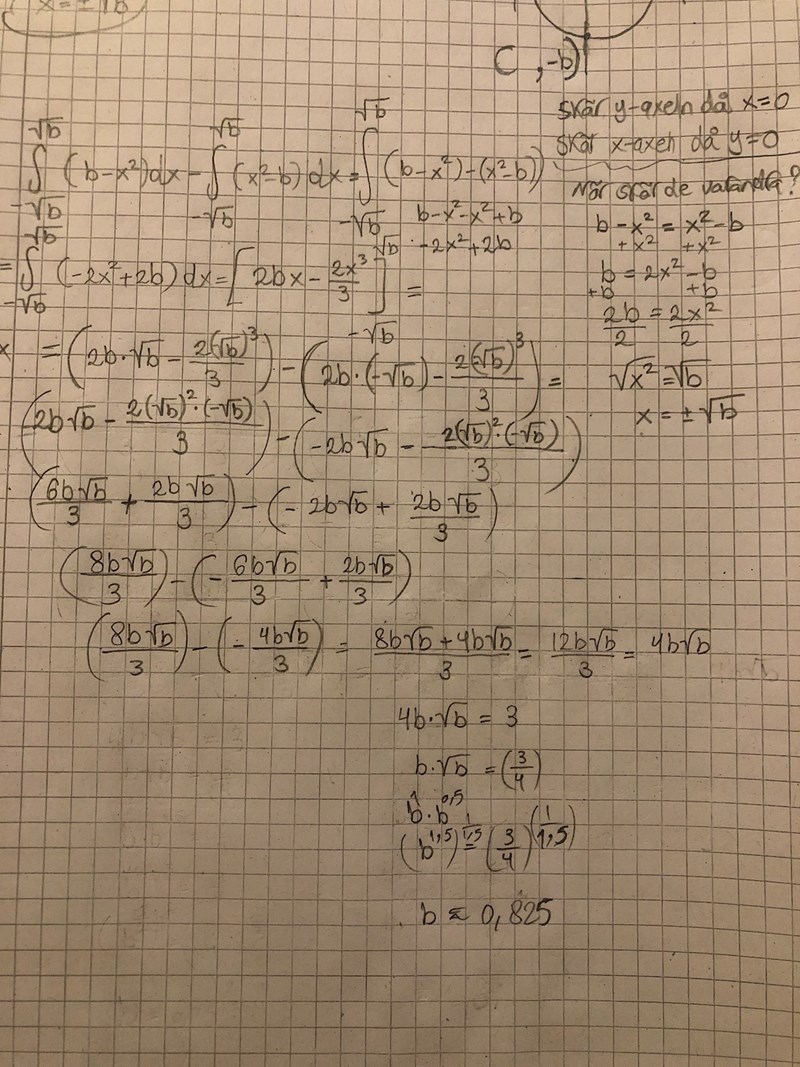 x = ± √b
( , -b)
skär y-axeln då x=0
skär x-axeln då y=0
När skär de varandra?
b-x² = x²-b
+x² +x²
b = 2x²-b
+b +b
2b/2 = 2x²/2
√x² = √b
x = ± √b
∫_{-√b}^{√b} (b-x²)dx - ∫_{-√b}^{√b} (x²-b)dx = ∫_{-√b}^{√b} (b-x²)-(x²-b))
b-x²-x²+b
-2x²+2b
= ∫_{-√b}^{√b} (-2x²+2b) dx = [2bx - 2x³/3]_{-√b}^{√b} =
x = (2b·√b - 2(√b)³/3) - (2b·(-√b) - 2(-√b)³/3) =
(2b√b - 2(√b)²·(-√b)/3) - (-2b√b - 2(√b)²·(-√b)/3)
(6b√b/3 + 2b√b/3) - (-2b√b + 2b√b/3)
(8b√b/3) - (-6b√b/3 + 2b√b/3)
(8b√b/3) - (-4b√b/3) = 8b√b+4b√b/3 = 12b√b/3 = 4b√b
4b·√b = 3
b·√b = (3/4)
b¹·b^0,5
(b^1,5)^(1/1,5) = (3/4)^(1/1,5)
b ≈ 0,825